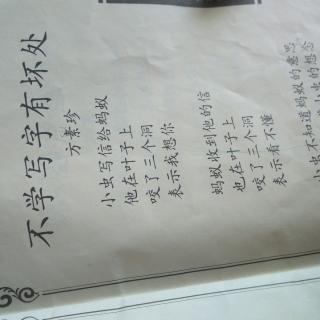 不学写字有坏处
方素珍
小虫写信给蚂蚁
他在叶子上
咬了三个洞
表示我想你
蚂蚁收到他的信
也在叶子上
咬了三个洞
表示看不懂
小虫不知道蚂蚁的意思
小虫的想念